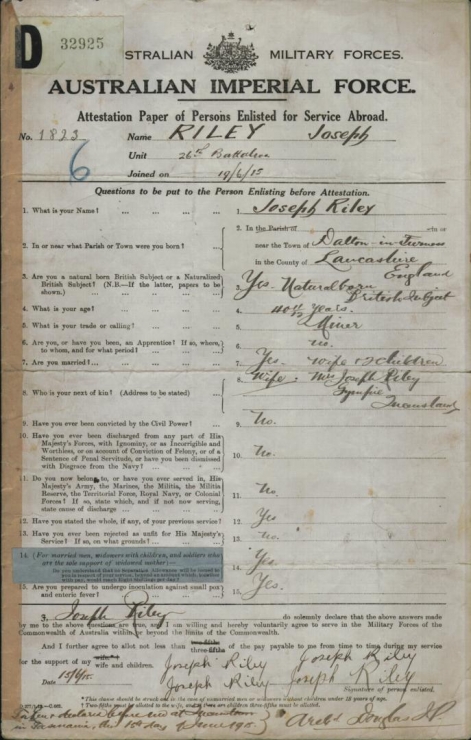 D 32925
AUSTRALIAN MILITARY FORCES.
AUSTRALIAN IMPERIAL FORCE.
Attestation Paper of Persons Enlisted for Service Abroad.
No. 1823 Name RILEY Joseph
6 Unit 26th Battalion
Joined on 19/6/15
Questions to be put to the Person Enlisting before Attestation.
1. What is your Name? ... ... ... 1. Joseph Riley
2. In or near what Parish or Town were you born? ... 2. In the Parish of in or
near the Town of Dalton-in-Furness
in the County of Lancashire
England
3. Are you a natural born British Subject or a Naturalized
British Subject? (N.B.—If the latter, papers to be
shown.) ... 3. Yes. Natural born
British Subject
4. What is your age? ... ... ... 4. years.
5. What is your trade or calling? ... ... 5. Miner
6. Are you, or have you been, an Apprentice? If so, where,
to whom, and for what period? ... ... 6. no.
7. Are you married? ... ... ... 7. Yes. Wife & 2 Children
8. Who is your next of kin? (Address to be stated) ... 8. Wife. Mrs Joseph Riley
Gympie
Queensland
9. Have you ever been convicted by the Civil Power? ... 9. No.
10. Have you ever been discharged from any part of His
Majesty's Forces, with Ignominy, or as Incorrigible and
Worthless, or on account of Conviction of Felony, or of a
Sentence of Penal Servitude, or have you been dismissed
with Disgrace from the Navy? ... ... 10. No.
11. Do you now belong to, or have you ever served in, His
Majesty's Army, the Marines, the Militia, the Militia
Reserve, the Territorial Force, Royal Navy, or Colonial
Forces? If so, state which, and if not now serving,
state cause of discharge ... ... 11. No.
12. Have you stated the whole, if any, of your previous service? 12. Yes
13. Have you ever been rejected as unfit for His Majesty's
Service? If so, on what grounds? ... ... 13. no.
14. (For married men, widowers with children, and soldiers who
are the sole support of widowed mother)—
Do you understand that no Separation Allowance will be issued in
respect of your service 14. Yes
15. Are you prepared to undergo inoculation against small pox
and enteric fever? ... ... 15. Yes.
I, Joseph Riley do solemnly declare that the above answers made
by me to the above questions are true, and I am willing and hereby voluntarily agree to serve in the Military Forces of the
Commonwealth of Australia within or beyond the limits of the Commonwealth.
And I further agree to allot not less than three-fifths of the pay payable to me from time to time during my service
for the support of my wife and children. Joseph Riley Joseph Riley
Date 15/6/15. Joseph Riley Joseph Riley
Signature of person enlisted.
declared before me at
the 15th day of June 1915. Archd Douglas JP.